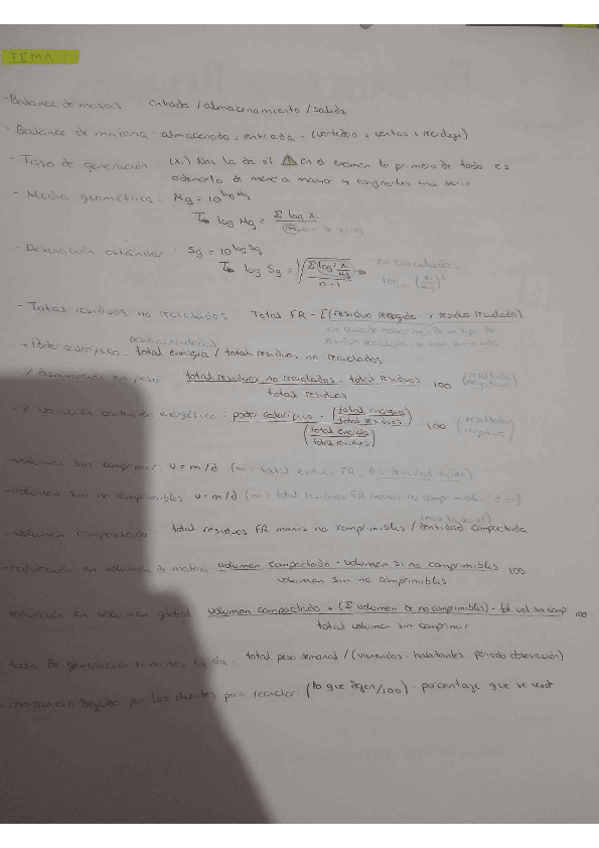 TEMA 1
- Balance de masas : entrada / almacenamiento / salida
- Balance de materia : almacenado = entrada - (vertedero + ventas + reciclaje)
- Tasa de generación : (xi) Nos la da el ⚠ en el examen lo primero de todo es
ordenarla de menor a mayor y asignarles una serie
- Media geométrica : Mg = 10^log Mg
log Mg = Σ log xi / n
- Desviación estándar : Sg = 10^log Sg
log Sg = √(Σ(log² xi/Mg) / n-1) en calculadora :
- Total residuos no reciclados Total FR - [(residuo recogido · residuo reciclado)
en caso de haber más de un tipo de
residuo reciclado, se van sumando
- Poder calorífico : total energía / total residuos no reciclados
- % disminución en peso total residuos no reciclados - total residuos / total residuos · 100 (resultado negativo)
contenido energético : poder calorífico - (total energía / total residuos) / (total energía / total residuos) · 100 (resultado negativo)
- volumen sin comprimir : v = m/d (m = total residuos FR, d = densidad
- volumen sin no comprimibles : v = m/d (m = total residuos FR menos no comprimibles
- volumen compactado : total residuos FR menos no comprimibles / densidad compactada
- reducción en volumen de materia : volumen compactado - volumen sin no comprimibles / volumen sin no comprimibles · 100
reducción en volumen global volumen compactado + (Σ volumen de no comprimibles) - tot vol sin comp / total volumen sin comprimir · 100
tasa de generación si no nos la da : total peso semanal / (viviendas · habitantes · periodo observación)
por los clientes para reciclar : (lo que dejen/100) · porcentaje que se